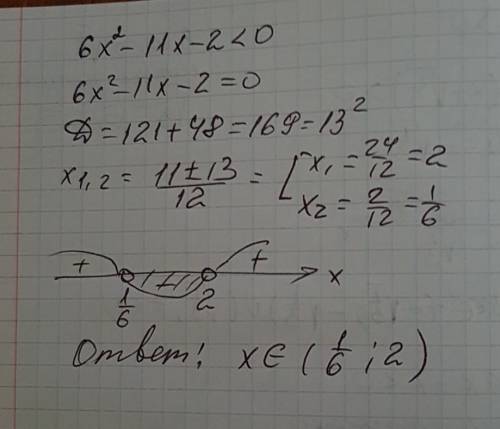 6x² - 11x - 2 < 0
6x² - 11x - 2 = 0
D = 121 + 48 = 169 = 13²
x₁,₂ = (11 ± 13)/12 = [ x₁ = 24/12 = 2
x₂ = 2/12 = 1/6
+ - + x
1/6 2
Ответ: x ∈ (1/6 ; 2)